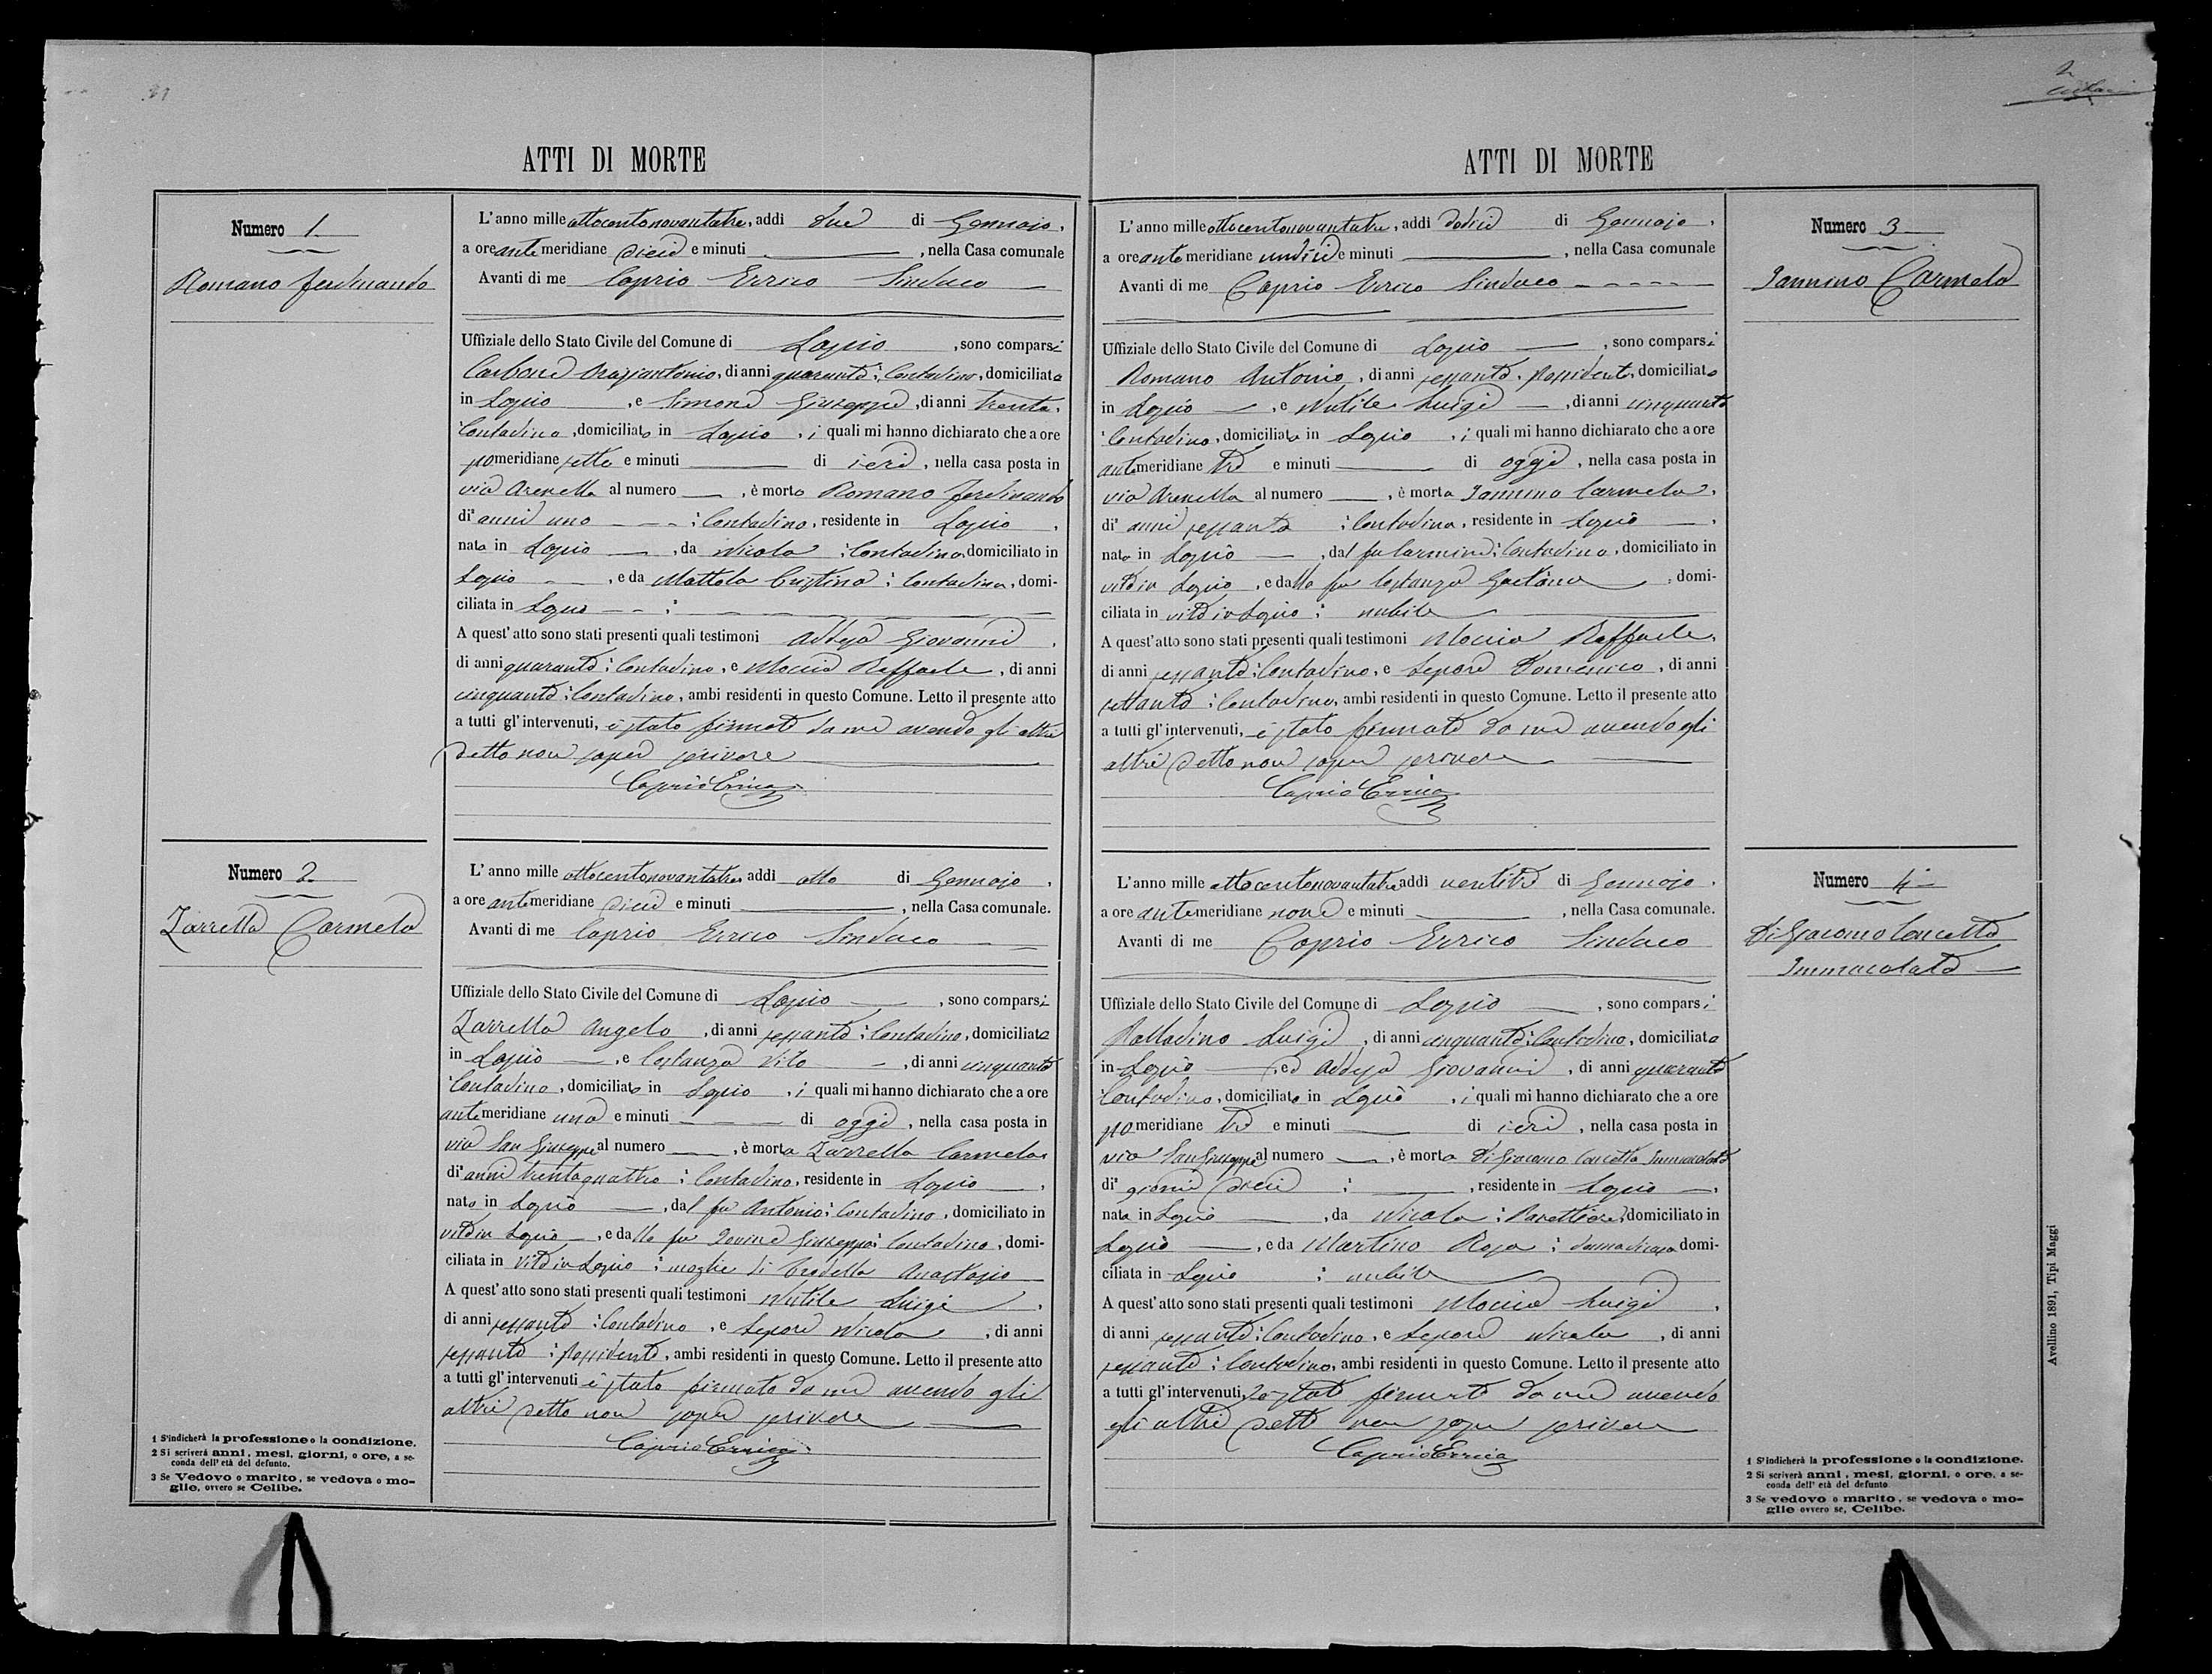 ATTI DI MORTE
Numero 1
Romano Ferdinando
L'anno mille ottocentonovantatre, addì due di Gennajo,
a ore antemeridiane dieci e minuti , nella Casa comunale
Avanti di me Caprio Errico Sindaco
Uffiziale dello Stato Civile del Comune di Lapio , sono comparsi
Carbone Oraziantonio, di anni quaranta, Contadino, domiciliato
in Lapio , e Simone Giuseppe, di anni trenta,
Contadino, domiciliato in Lapio , i quali mi hanno dichiarato che a ore
pomeridiane sette e minuti di ieri, nella casa posta in
via Arenella al numero , è morto Romano Ferdinando
di anni uno Contadino, residente in Lapio ,
nato in Lapio , da Nicola Contadino domiciliato in
Lapio , e da Mattola Cristina Contadina, domi-
ciliata in Lapio
A quest'atto sono stati presenti quali testimoni Addesa Giovanni ,
di anni quaranta Contadino, e Moccia Raffaele, di anni
cinquanta Contadino, ambi residenti in questo Comune. Letto il presente atto
a tutti gl'intervenuti, è stato firmato da me avendo gli altri
detto non saper scrivere
Caprio Errico
Numero 2
Zarrella Carmela
L'anno mille ottocentonovantatre addì otto di Gennajo ,
a ore antemeridiane dieci e minuti , nella Casa comunale.
Avanti di me Caprio Errico Sindaco
Uffiziale dello Stato Civile del Comune di Lapio , sono comparsi
Zarrella Angelo , di anni sessanta Contadino, domiciliato
in Lapio , e Costanza Vito , di anni cinquanta
Contadino, domiciliato in Lapio , i quali mi hanno dichiarato che a ore
antemeridiane una e minuti di oggi, nella casa posta in
via San Giuseppe al numero , è morta Zarrella Carmela
di anni trentaquattro Contadina, residente in Lapio ,
nata in Lapio , dal fu Antonio Contadino, domiciliato in
vita in Lapio , e dalla fu Giuseppa Contadina, domi-
ciliata in vita in Lapio moglie di Anastasio
A quest'atto sono stati presenti quali testimoni Nutile Luigi ,
di anni sessanta Contadino , e Lepore Nicola , di anni
sessanta Possidente, ambi residenti in questo Comune. Letto il presente atto
a tutti gl'intervenuti è stato firmato da me avendo gli
altri detto non saper scrivere
Caprio Errico
1 S'indicherà la professione o la condizione.
2 Si scriverà anni, mesi, giorni, o ore, a se-
conda dell'età del defunto.
3 Se Vedovo o marito, se vedova o mo-
glie, ovvero se Celibe.
2
ATTI DI MORTE
Numero 3
Iannino Carmela
L'anno mille ottocentonovantatre, addì dodici di Gennajo ,
a ore antemeridiane undici e minuti , nella Casa comunale
Avanti di me Caprio Errico Sindaco
Uffiziale dello Stato Civile del Comune di Lapio , sono comparsi
Romano Antonio, di anni sessanta, Possidente, domiciliato
in Lapio , e Nutile Luigi , di anni cinquanta
Contadino, domiciliato in Lapio , i quali mi hanno dichiarato che a ore
antemeridiane tre e minuti di oggi , nella casa posta in
via Arenella al numero , è morta Iannino Carmela,
di anni sessanta Contadina, residente in Lapio ,
nata in Lapio , dal fu Carmine Contadino, domiciliato in
vita in Lapio , e dalla fu Costanza Gaetana , domi-
ciliata in vita in Lapio nubile
A quest'atto sono stati presenti quali testimoni Moccia Raffaele,
di anni sessanta Contadino, e Lepore Domenico, di anni
settanta Contadino, ambi residenti in questo Comune. Letto il presente atto
a tutti gl'intervenuti, è stato firmato da me avendo gli
altri detto non saper scrivere
Caprio Errico
Numero 4
Di Giacomo Concetta
Immacolata
L'anno mille ottocentonovantatre addì ventitre di Gennajo ,
a ore antemeridiane nove e minuti , nella Casa comunale.
Avanti di me Caprio Errico Sindaco
Uffiziale dello Stato Civile del Comune di Lapio , sono comparsi
Palladino Luigi , di anni cinquanta Contadino, domiciliato
in Lapio , ed Addesa Giovanni , di anni quaranta
Contadino, domiciliato in Lapio , i quali mi hanno dichiarato che a ore
pomeridiane tre e minuti di ieri , nella casa posta in
via San Giuseppe al numero , è morta Di Giacomo Concetta Immacolata
di giorni dieci , residente in Lapio ,
nata in Lapio , da Nicola Panettiere domiciliato in
Lapio , e da Martino Rosa donna di casa domi-
ciliata in Lapio nubile
A quest'atto sono stati presenti quali testimoni Moccia Luigi ,
di anni sessanta Contadino, e Lepore Nicola , di anni
sessanta Contadino, ambi residenti in questo Comune. Letto il presente atto
a tutti gl'intervenuti, è stato firmato da me avendo
gli altri detto non saper scrivere
Caprio Errico
1 S'indicherà la professione o la condizione.
2 Si scriverà anni, mesi, giorni, o ore, a se-
conda dell'età del defunto
3 Se vedovo o marito, se vedova o mo-
glie ovvero se, Celibe.
Avellino 1891, Tipi Maggi